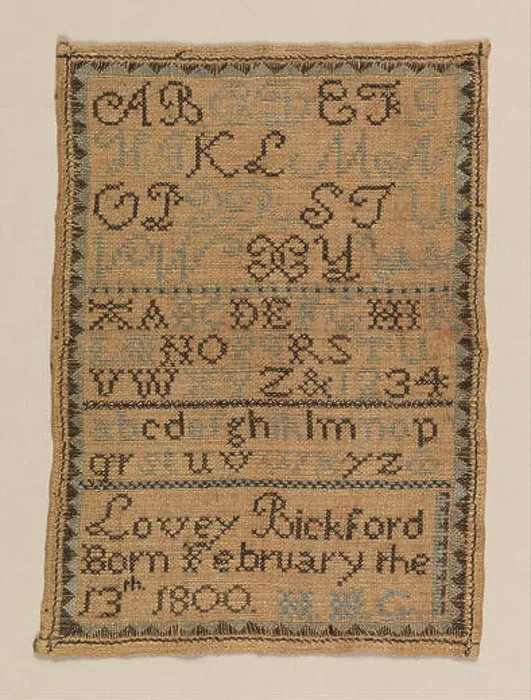 A B C D E F G
H I K L M N
O P Q R S T U
V W X Y Z &
A B C D E F G H I
L M N O P Q R S T U
V W X Y Z & 1 2 3 4
a b c d e f g h i k l m n o p
q r s t u v w x y z
Lovey Bickford
Born February the
13th 1800.